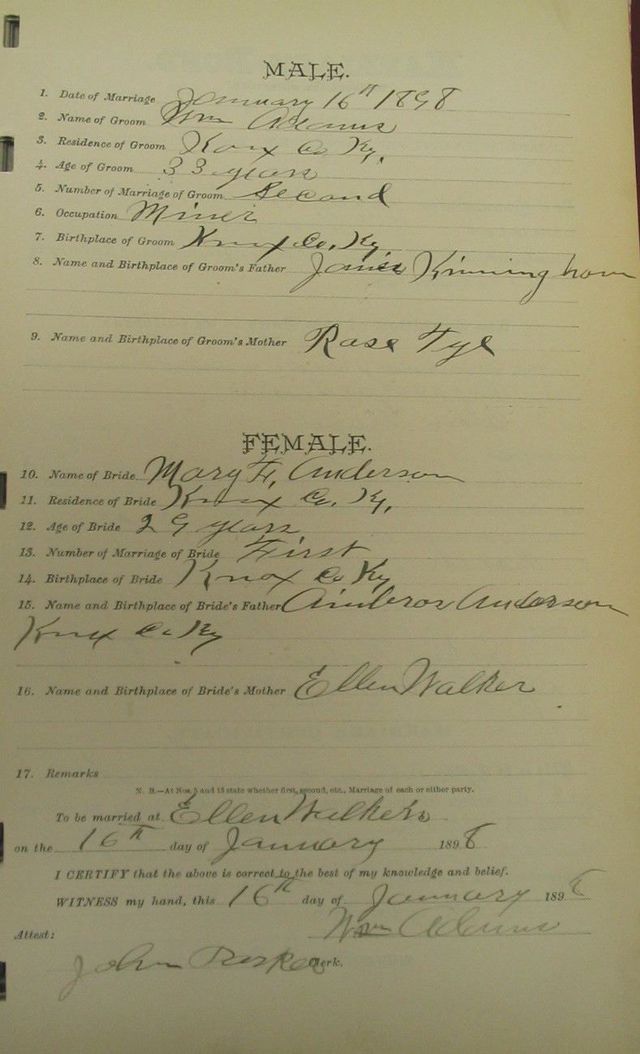 MALE.
1. Date of Marriage January 16th 1898
2. Name of Groom Wm Adams
3. Residence of Groom Knox Co Ky.
4. Age of Groom 33 years
5. Number of Marriage of Groom Second
6. Occupation Miner
7. Birthplace of Groom Knox Co, Ky
8. Name and Birthplace of Groom's Father
9. Name and Birthplace of Groom's Mother Rose Tye
FEMALE.
10. Name of Bride Mary F, Anderson
11. Residence of Bride Knox Co, Ky,
12. Age of Bride 29 years
13. Number of Marriage of Bride First
14. Birthplace of Bride Knox Co Ky
15. Name and Birthplace of Bride's Father Ambros Anderson
Knox Co Ky
16. Name and Birthplace of Bride's Mother Ellen Walker
17. Remarks
N. B.—At Nos. 5 and 13 state whether first, second, etc., Marriage of each or either party.
To be married at Ellen Walkers
on the 16th day of January 1898
I CERTIFY that the above is correct to the best of my knowledge and belief.
WITNESS my hand, this 16th day of January 1898
Wm Adams
Attest:
John Clerk.